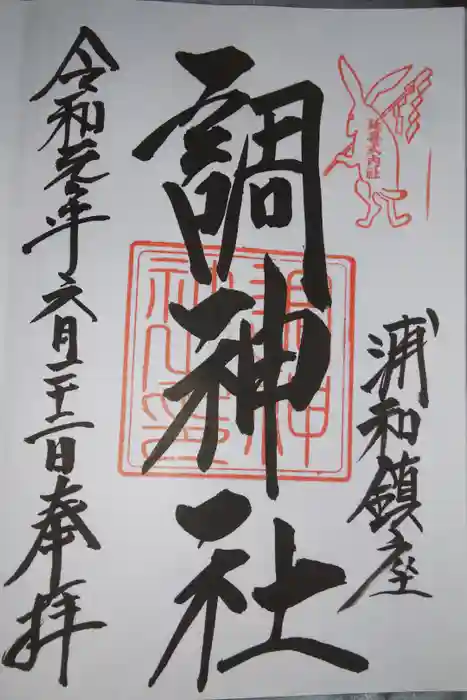 延喜式内社
浦和鎮座
調神社
令和元年六月二十二日奉拝